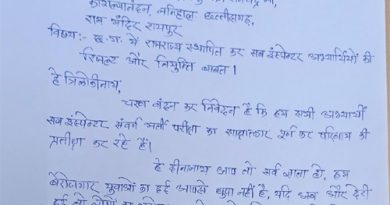 कौशल्यानंदन, ननिहाल छत्तीसगढ़,
राम मंदिर रायपुर
विषय:- छ.ग. में रामराज्य स्थापित कर सब इंस्पेक्टर अभ्यर्थियों की
रिजल्ट और नियुक्ति बाबत।
हे त्रिलोकीनाथ,
चरण वंदन कर निवेदन है कि हम सभी अभ्यर्थी
सब इंस्पेक्टर संवर्ग भर्ती परीक्षा का साक्षात्कार पूर्ण कर परिणाम की
प्रतीक्षा कर रहे हैं।
हे दीनानाथ आप तो सर्व ज्ञाता हो, हम
बेरोजगार युवाओं का दर्द आपसे छुपा नहीं है, यदि अब और देरी